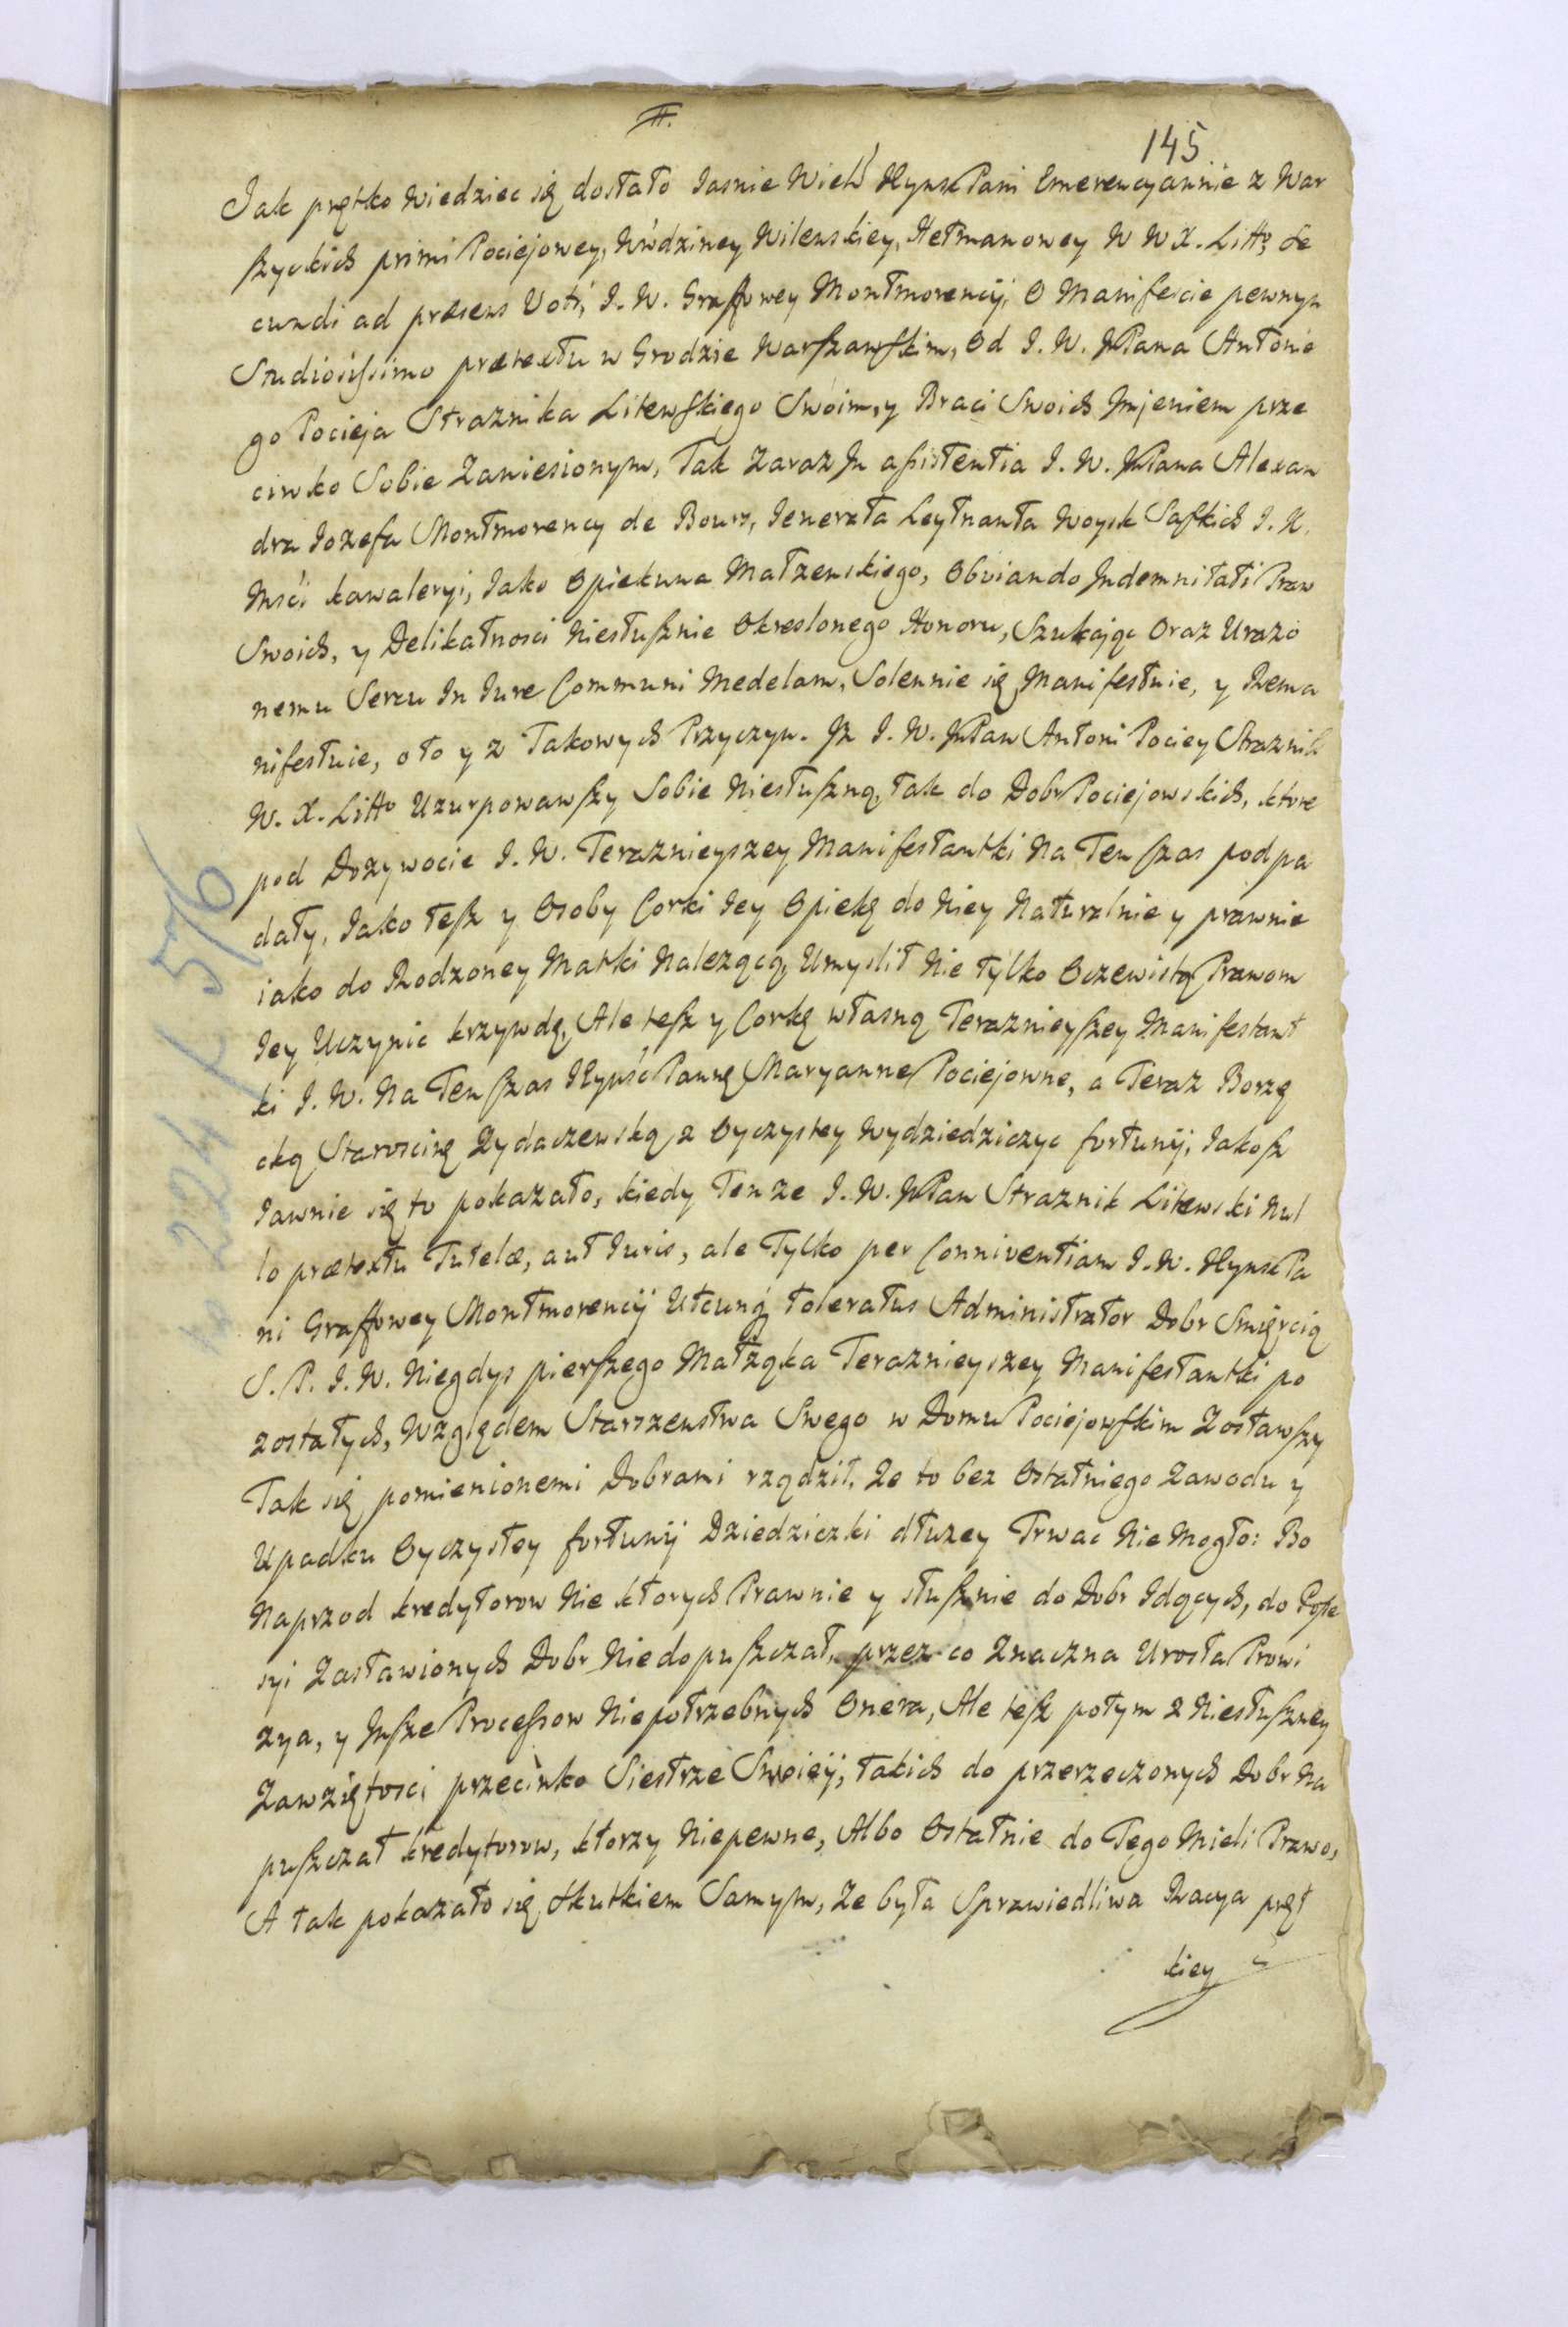 #.
145
Jak prętko Wiedziec się dostało Jasnie Wiel. Ily Pani Emerencyannie z War
szyckich primi Pociejowey, Wdziney Wilenskiey, Hetmanowey W W X. Litto, Se
cundi ad præsens Voti, J. W. Graffowey Montmorencÿ, O Manifescie pewnym
Studiosissimo prætextu w Grodzie Warszawskim, Od J. W. JPana Antonie
go Pocieja Straznika Litewskiego Swoim, y Braci Swoich Jmjeniem prze
ciwko Sobie Zaniesionym, Tak Zaraz Jn assistentia J. W. JPana Alexan
dra Jozefa Montmorency de Bours, Jenerała Leytnanta Woysk Saskich J. K.
Mści kawaleryi, Jako Opiekuna Małzenskiego, Obviando Jndemnitati Praw
Swoich, y Delikatnosci Niesłusznie Okreslonego Honoru, Szukając Oraz Urazo
nemu Sercu Jn Jure Communi Medelam, Solennie się Manifestuie, y Rema
nifestuie, o to y z Takowych Przyczyn. Jz J. W. JPan Antoni Pociey Straznik
W. X. Litto Uzurpowawszy Sobie Niesłuszną, tak do Dobr Pociejowskich, ktore
pod Dozywocie J. W. Teraznieyszey Manifestantki Na Ten szas podpa
dały, Jako tesz y Osoby Corki Jey Opiekę do Niey Naturalnie y prawnie
iako do Rodzoney Matki Nalezącą, Umyslił Nie tylko Oczewistą Prawom
Jey Uczynic krzywdę, Ale tesz y Corkę własną Teraznieyszey Manifestant
ki J. W. Na Ten szas Pannę Maryannę Pociejownę, a Teraz Borzę
cką Staroscinę Zydaczewską z Oyczystey Wydziedziczyc fortunÿ, Jakosz
Jawnie się to pokazało, kiedy Tenze J. W. JPan Straznik Litewski Nul
lo prætextu Tutelæ, aut Juris, ale Tylko per Conniventiam J. W. Pa
ni Graffowey Montmorencÿ Utcunq toleratus Administrator Dobr Smięrcią
S. P. J. W. Niegdys pierszego Małząka Teraznieyszey Manifestantki po
zostałych, Względem Starszenstwa Swego w Domu Pociejowskim Zostawszy
Tak się pomienionemi Dobrami rządził, Ze to bez Ostatniego Zawodu y
Upadku Oyczystey fortunÿ Dziedziczki dłuzey Trwac Nie Mogło: Bo
Naprzod kredytorow Nie ktorych Prawnie y słusznie do Dobr Jdących, do Posse
syi Zastawionych Dobr Niedopuszczał, przez co Znaczna Urosła Prowi
zya, y Jnsze Processow Niepotrzebnych Onera, Ale tesz potym z Niesłuszney
Zawziętosci przeciwko Siestrze Swoieÿ, takich do przerzeczonych Dobr Na
puszczał kredytorow, ktorzy Niepewne, Albo Ostatnie do Tego Mieli Prawo,
A tak pokazało się Skutkiem Samym, Ze była Sprawiedliwa Racya pręt
kiey
224 k 576